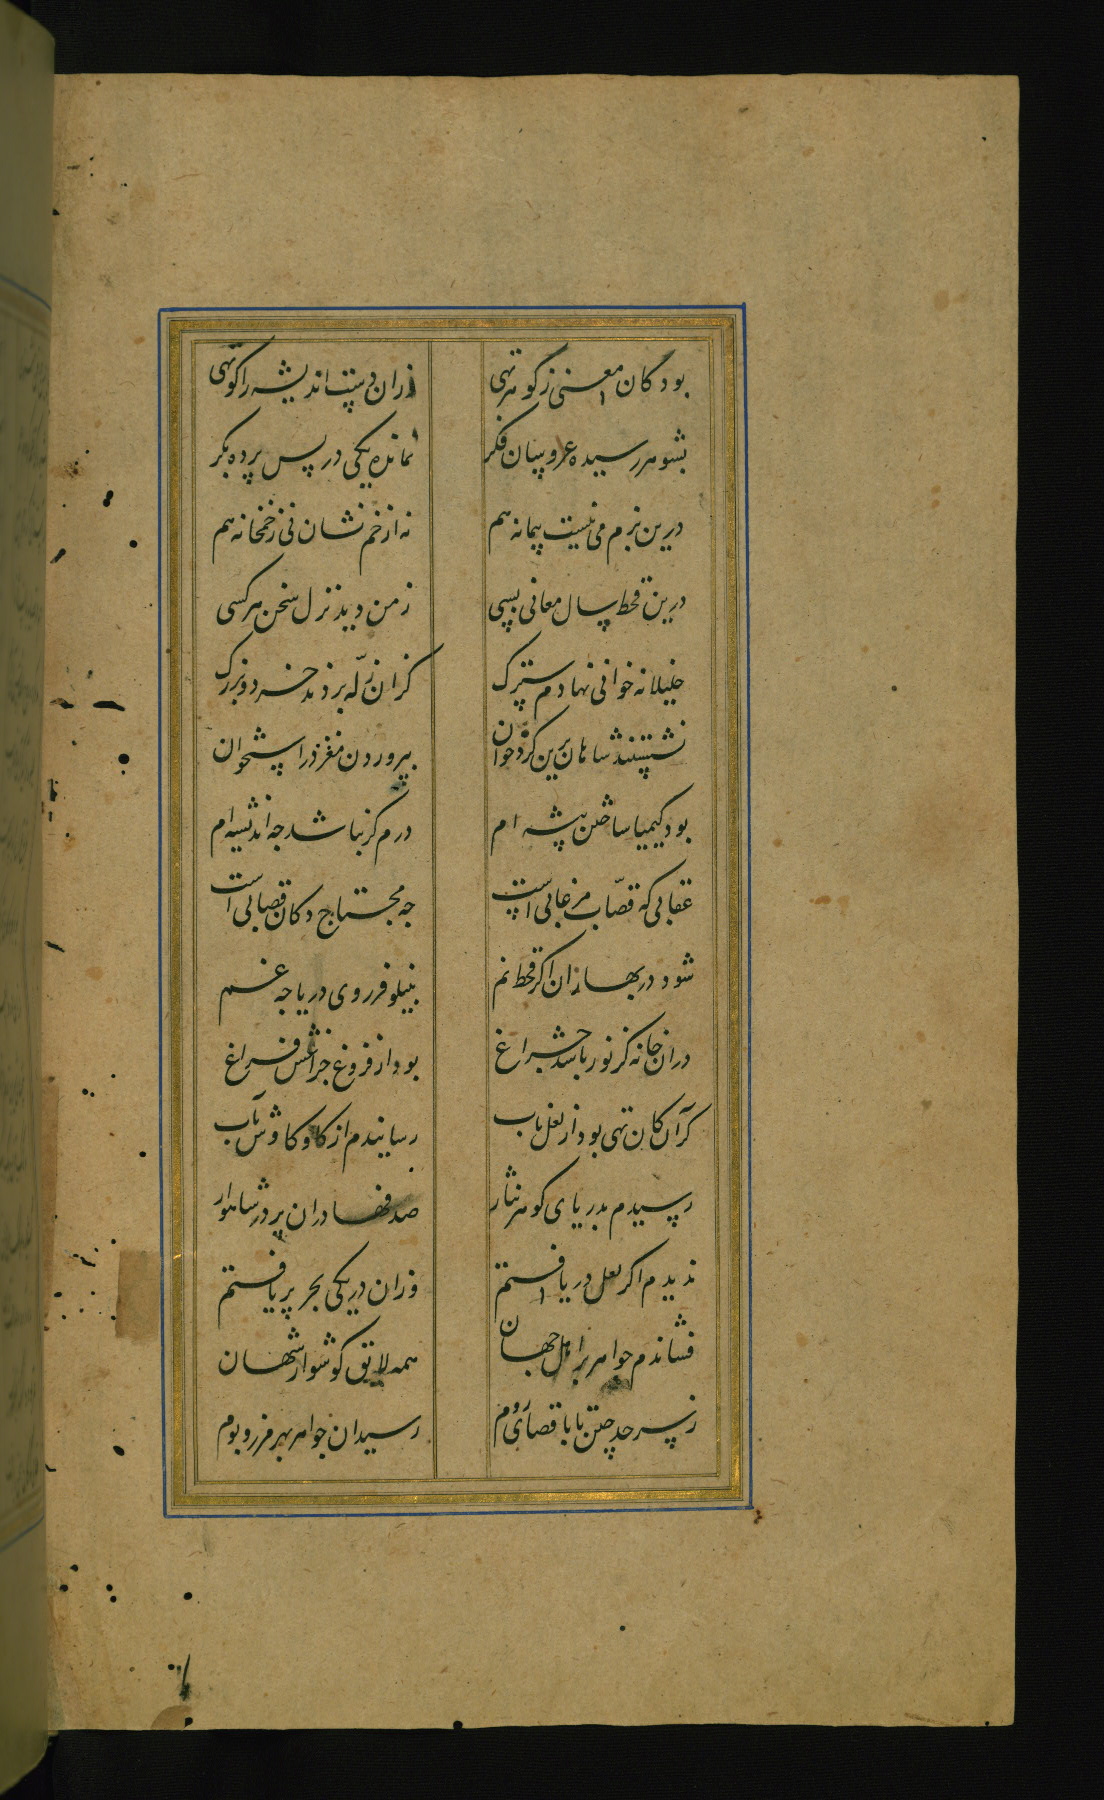 بود کان معنی ز کوهر تهی ازان دست اندیشه را کوتهی
بشوهر رسیده عروسان فکر نمانده یکی در پس پرده بکر
درین بزم می نیست پیمانه هم نه از خم نشان نی ز خمخانه هم
درین قحط سال معانی بسی ز من دید نزل سخن هر کسی
خلیلانه خوانی نهادم سترک کزان زلّه بردند خرد و بزرک
نشستند شاهان برین کرد خوان بپروردن مغز در استخوان
بود کیمیا ساختن پیشه ام درم کر نباشد چه اندیشه ام
عقابی که قصّاب مرغابی است چه محتاج دکان قصابی است
شود در بهاران اکر قحط نم بنیلوفر روی دریا چه غم
دران خانه کز نور باشد چراغ بود از فروغ چراغش فراغ
کر آن کان تهی بود از لعل ناب رسانیدم از کاو کاوش بآب
رسیدم بدریای کوهر نثار صدفها دران پر در شاهوار
ندیدم اکر لعل در یافتم وزان در یکی بحر پر یافتم
فشاندم جواهر بر اهل جهان همه لایق کوشوار شهان
ز سرحد چین تا باقصای روم رسید آن جواهر بهر مرز و بوم